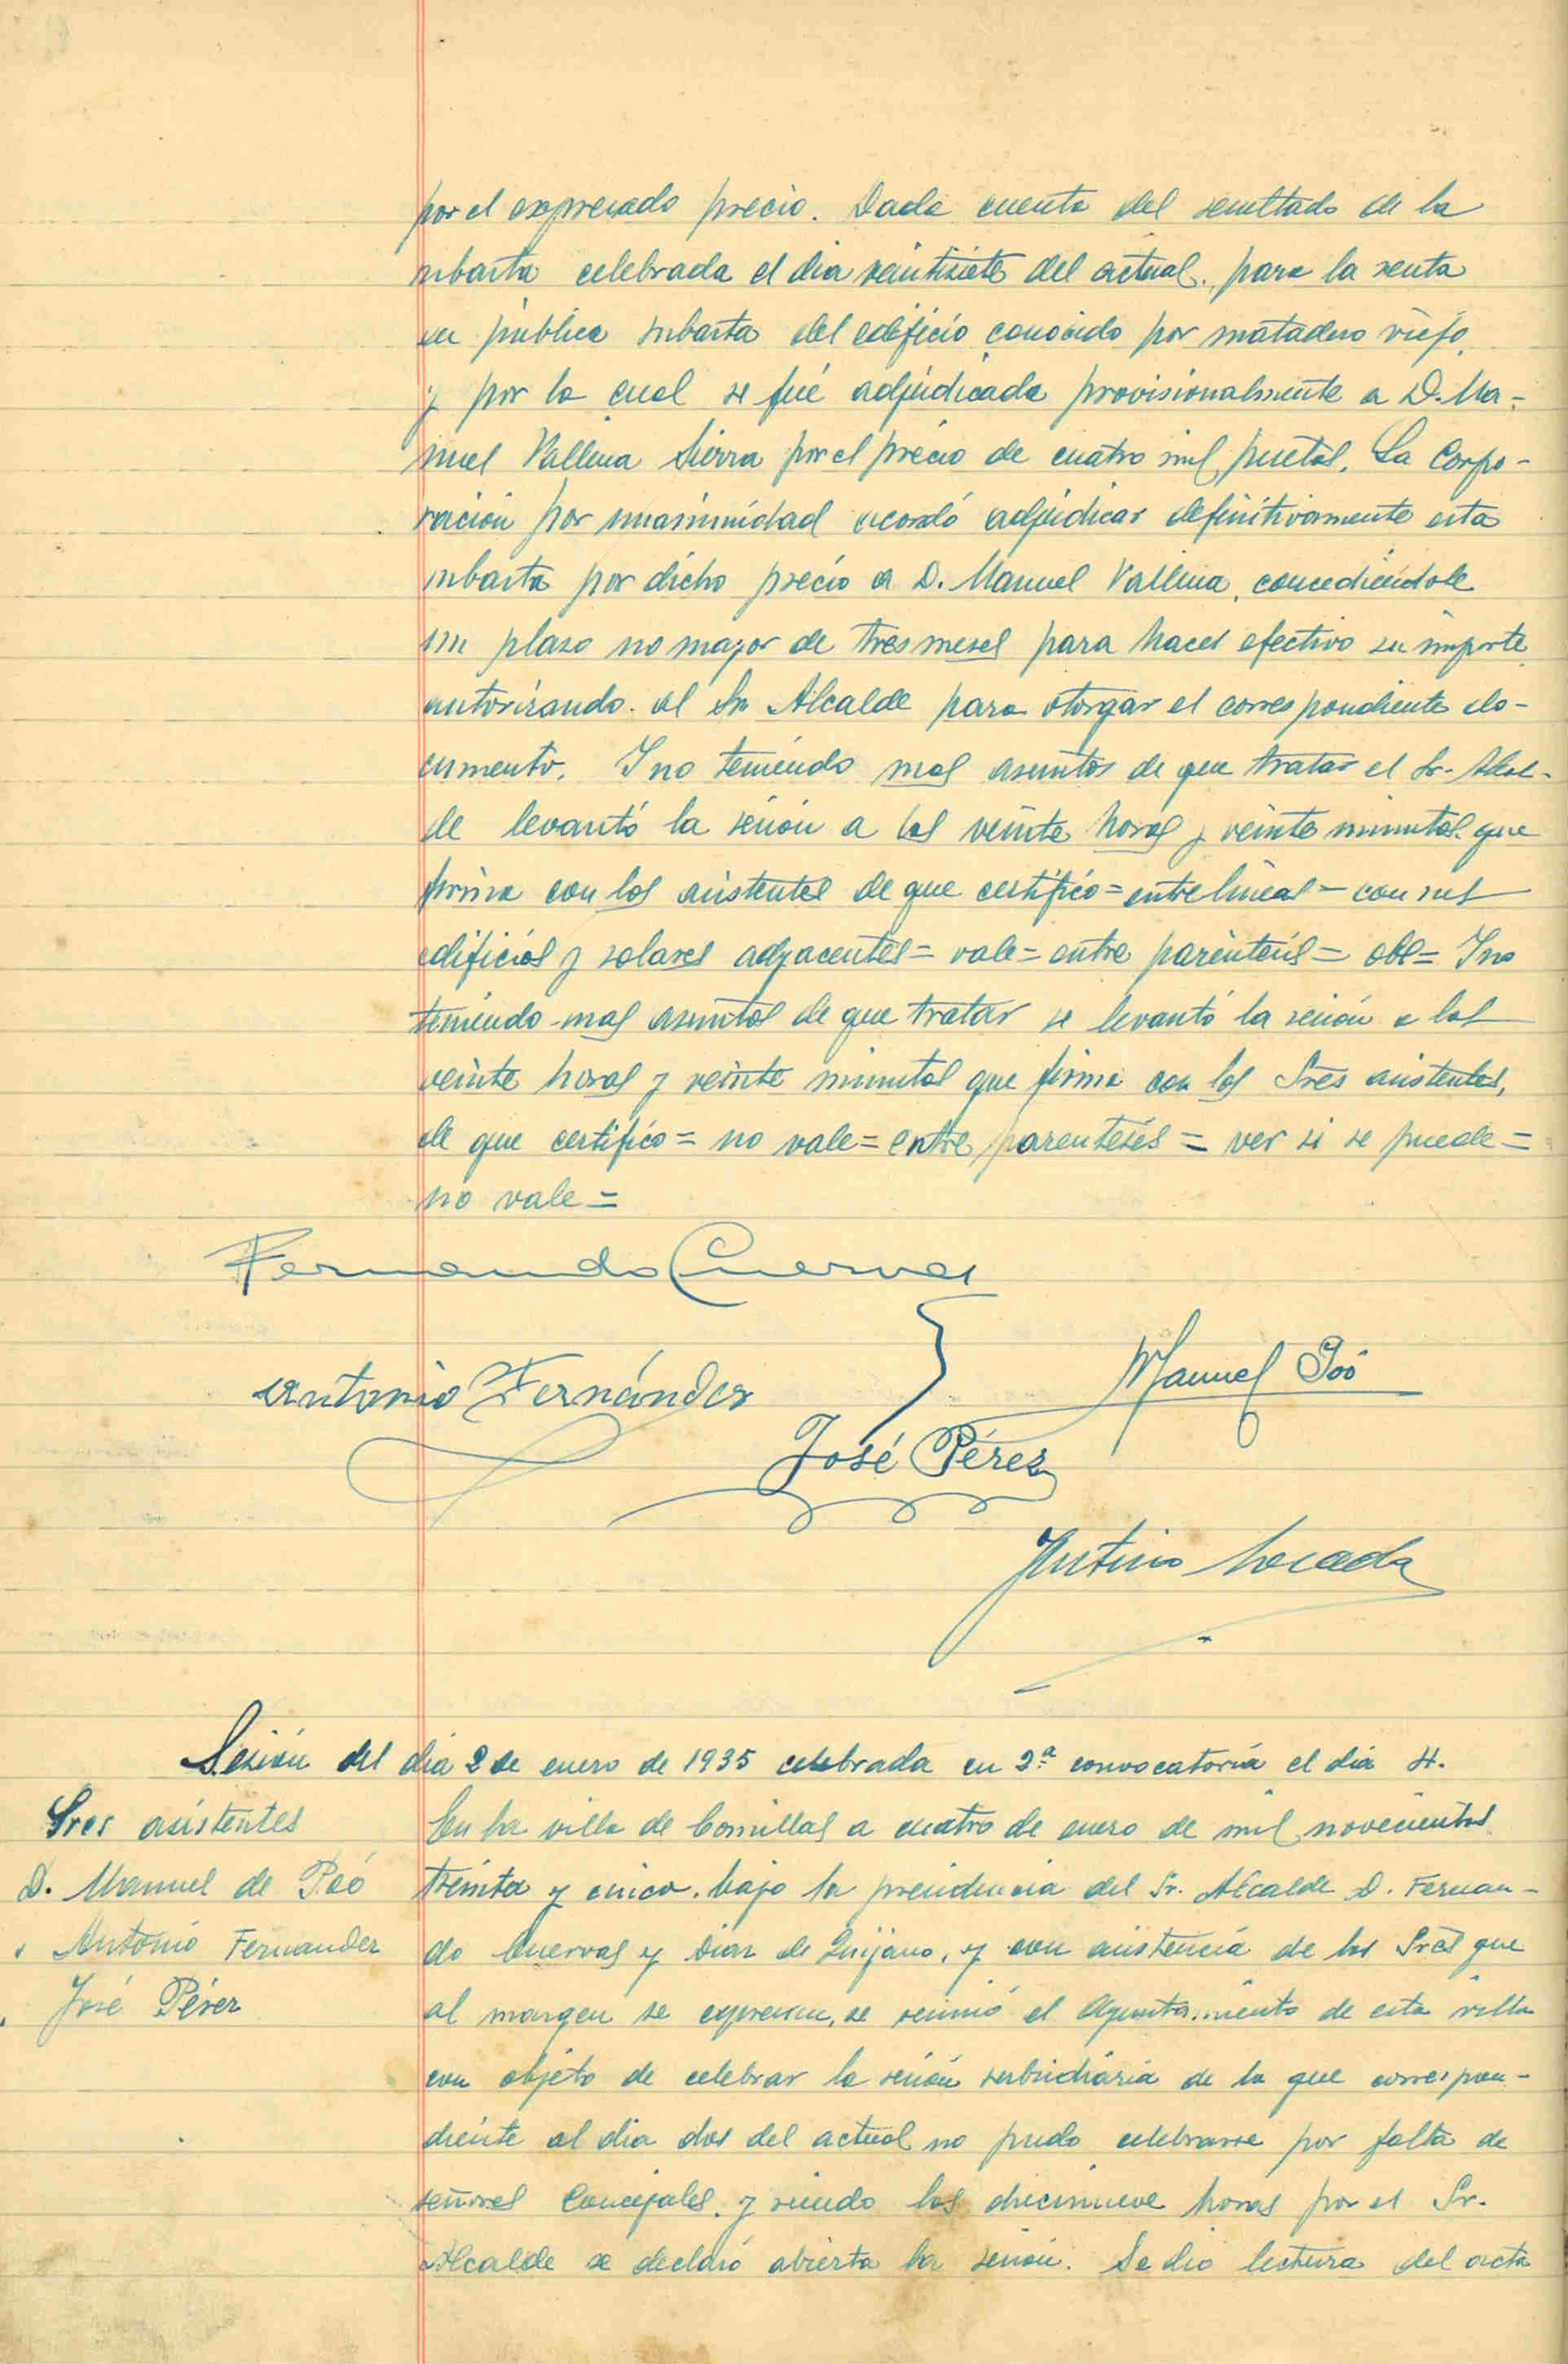 por el expresado precio. Dada cuenta del resultado de la
subasta celebrada el dia veintisiete del actual, para la venta
en publica subasta del edificio conocido por matadero viejo,
y por la cual se fué adjudicada provisionalmente a D. Ma-
nuel Vallina Sierra por el precio de cuatro mil pesetas. La Corpo-
ración por unanimidad acordó adjudicar definitivamente esta
subasta por dicho precio a D. Manuel Vallina, concediéndole
un plazo no mayor de tres meses para hacer efectivo su importe
autorizando al Sr Alcalde para otorgar el correspondiente do-
cumento. Y no teniendo mas asuntos de que tratar el Sr. Alcal-
de levantó la sesión a las veinte horas y veinte minutos que
firma con los asistentes de que certifico = entre lineas = con sus
edificios y solares adyacentes = vale = entre paréntesis = Y no
teniendo mas asuntos de que tratar se levantó la sesión a las
veinte horas y veinte minutos que firma con los Sres asistentes,
de que certifico = no vale = entre parentesis = ver si se puede =
no vale =
Fernando Cuervas
Antonio Fernández
Manuel Poó
José Pérez
Sesión del dia 2 de enero de 1935 celebrada en 2ª convocatoria el dia 4.
Sres asistentes
D. Manuel de Poó
" Antonio Fernandez
" José Pérez
En la villa de Comillas a cuatro de enero de mil novecientos
treinta y cinco, bajo la presidencia del Sr. Alcalde D. Fernan-
do Cuervas y Diaz de Quijano, y con asistencia de los Sres que
al margen se expresan, se reunió el Ayuntamiento de esta villa
con objeto de celebrar la sesión subsidiaria de la que correspon-
diente al dia dos del actual no pudo celebrarse por falta de
señores Concejales, y siendo las diecinueve horas por el Sr.
Alcalde se declaró abierta la sesión. Se dio lectura del acta